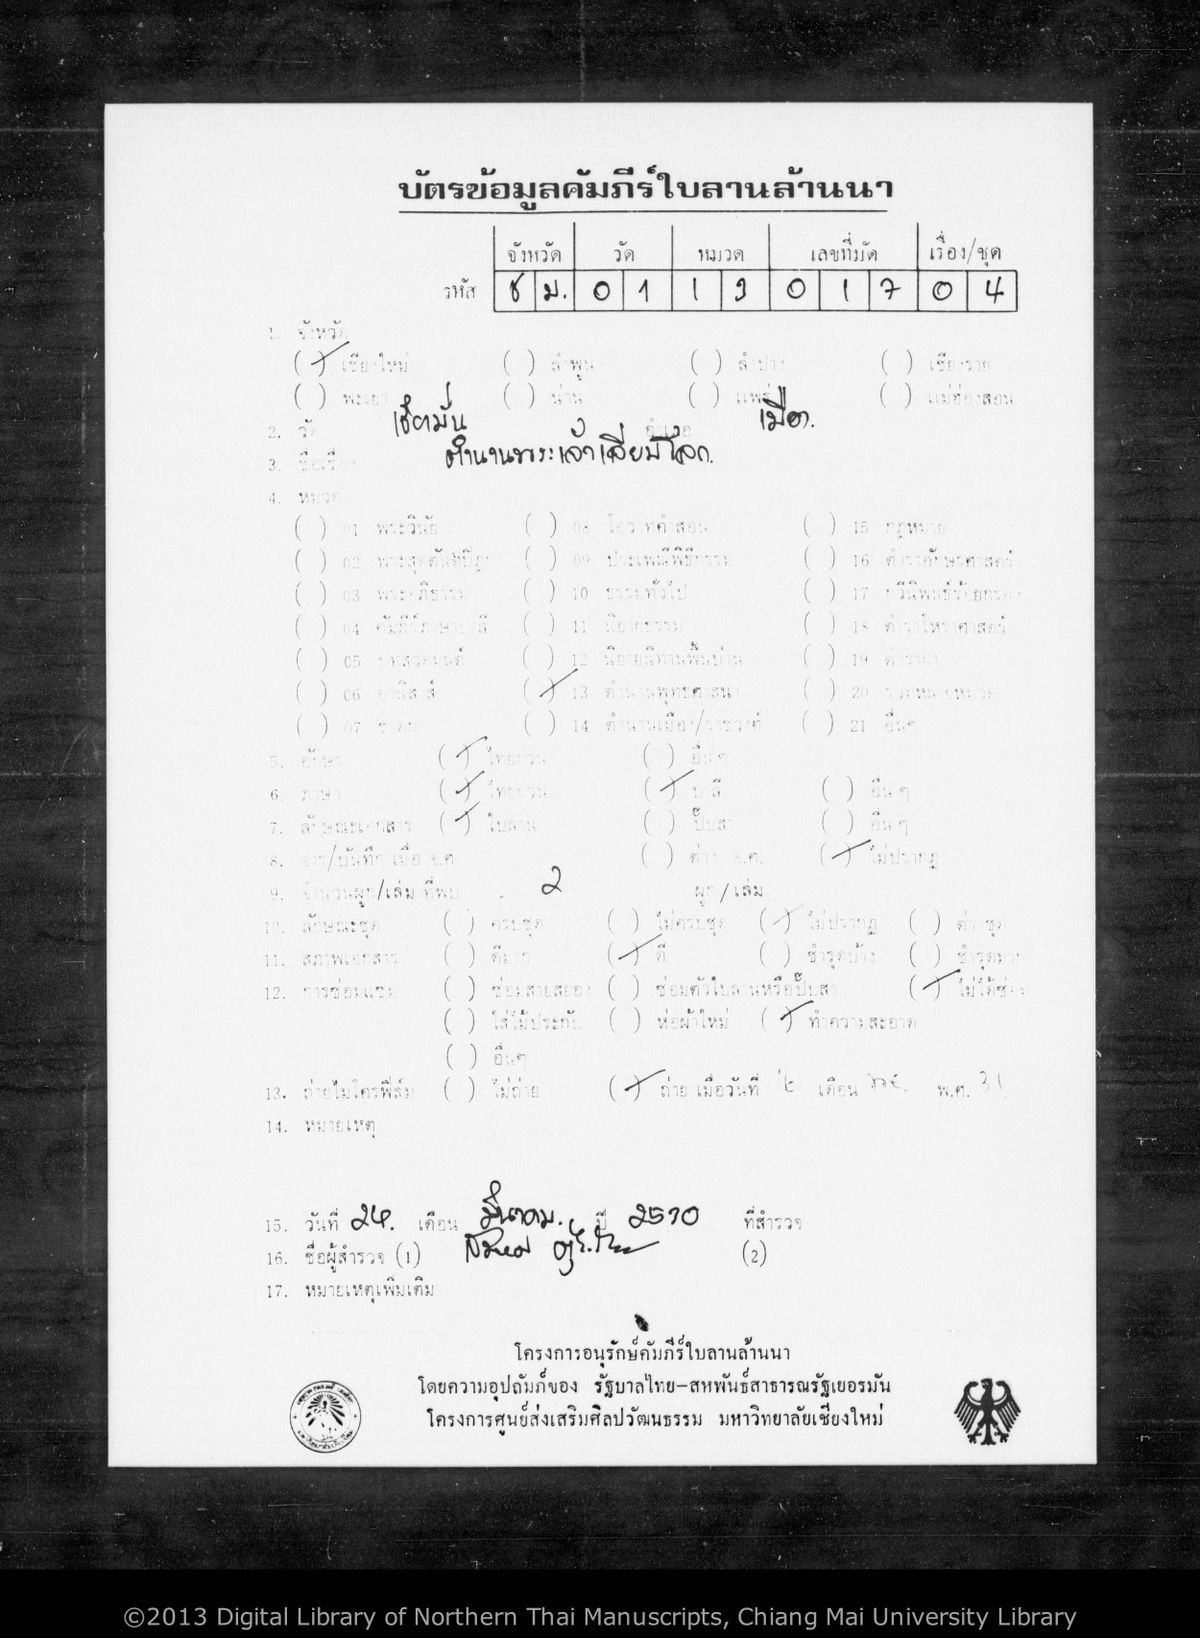 บัตรข้อมูลคัมภีร์ใบลานล้านนา
จังหวัด วัด หมวด เลขที่มัด เรื่อง/ชุด
รหัส ช ม. 0 1 1 3 0 1 7 0 4
1. จังหวัด
( / ) เชียงใหม่ ( ) ลำพูน ( ) ลำปาง ( ) เชียงราย
( ) พะเยา ( ) น่าน ( ) แพร่ ( ) แม่ฮ่องสอน
2. วัด เชียงมั่น อำเภอ เมือง.
3. ชื่อเรื่อง ตำนานพระเจ้าเลียบโลก.
4. หมวด
( ) 01 พระวินัย ( ) 08 โอวาทคำสอน ( ) 15 กฎหมาย
( ) 02 พระสุตตันตปิฎก ( ) 09 ประเพณีพิธีกรรม ( ) 16 ตำราอักษรศาสตร์
( ) 03 พระอภิธรรม ( ) 10 ธรรมทั่วไป ( ) 17 กวีนิพนธ์ร้อยกรอง
( ) 04 คัมภีร์ภาษาบาลี ( ) 11 นิยายธรรม ( ) 18 ตำราโหราศาสตร์
( ) 05 บทสวดมนต์ ( ) 12 นิยายนิทานพื้นบ้าน ( ) 19 ตำรายา
( ) 06 อานิสงส์ ( / ) 13 ตำนานพุทธศาสนา ( ) 20 รวมหลายหมวด
( ) 07 ชาดก ( ) 14 ตำนานเมือง/ราชวงศ์ ( ) 21 อื่นๆ
5. อักษร ( / ) ไทยยวน ( ) อื่นๆ
6. ภาษา ( / ) ไทยยวน ( / ) บาลี ( ) อื่นๆ
7. ลักษณะเอกสาร ( / ) ใบลาน ( ) ปั๊บสา ( ) อื่นๆ
8. จาร/บันทึก เมื่อ จ.ศ. ( ) ต่าง จ.ศ. ( / ) ไม่ปรากฏ
9. จำนวนผูก/เล่ม ที่พบ 2 ผูก / เล่ม
10. ลักษณะชุด ( ) ครบชุด ( ) ไม่ครบชุด ( / ) ไม่ปรากฏ ( ) ต่างชุด
11. สภาพเอกสาร ( ) ดีมาก ( / ) ดี ( ) ชำรุดบ้าง ( ) ชำรุดมาก
12. การซ่อมแซม ( ) ซ่อมสายสยอง ( ) ซ่อมตัวใบลานหรือปั๊บสา ( / ) ไม่ได้ซ่อม
( ) ใส่ไม้ประกับ ( ) ห่อผ้าใหม่ ( / ) ทำความสะอาด
( ) อื่นๆ
13. ถ่ายไมโครฟิล์ม ( ) ไม่ถ่าย ( / ) ถ่าย เมื่อวันที่ เดือน พ.ศ.
14. หมายเหตุ
15. วันที่ 24. เดือน มีนาคม. ปี 2530 ที่สำรวจ
16. ชื่อผู้สำรวจ (1) (2)
17. หมายเหตุเพิ่มเติม
โครงการอนุรักษ์คัมภีร์ใบลานล้านนา
โดยความอุปถัมภ์ของ รัฐบาลไทย-สหพันธ์สาธารณรัฐเยอรมัน
โครงการศูนย์ส่งเสริมศิลปวัฒนธรรม มหาวิทยาลัยเชียงใหม่
©2013 Digital Library of Northern Thai Manuscripts, Chiang Mai University Library